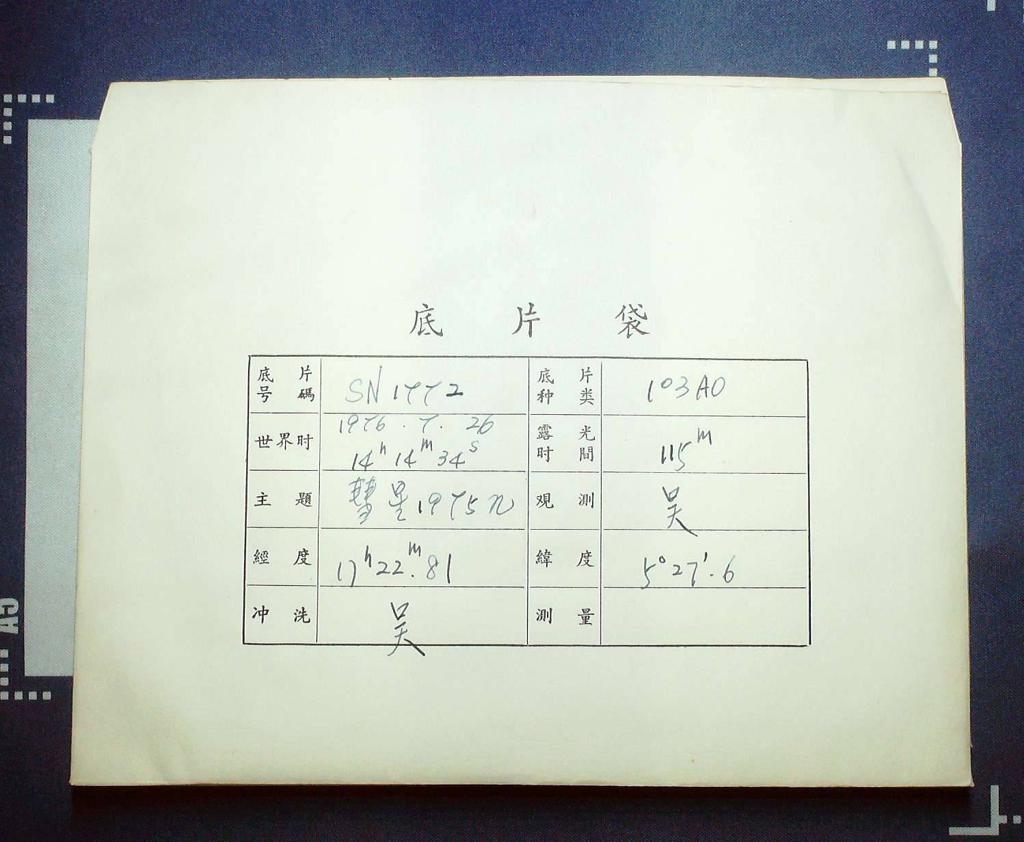 底片袋
底片号碼 SN1772 底片种类 103AO
世界时 1976.7.26 露光时間 115m
14h 14m 34s
主題 彗星1975n 观測 吴
經度 17h22m.81 緯度 5°27'.6
冲洗 吴 測量
A5